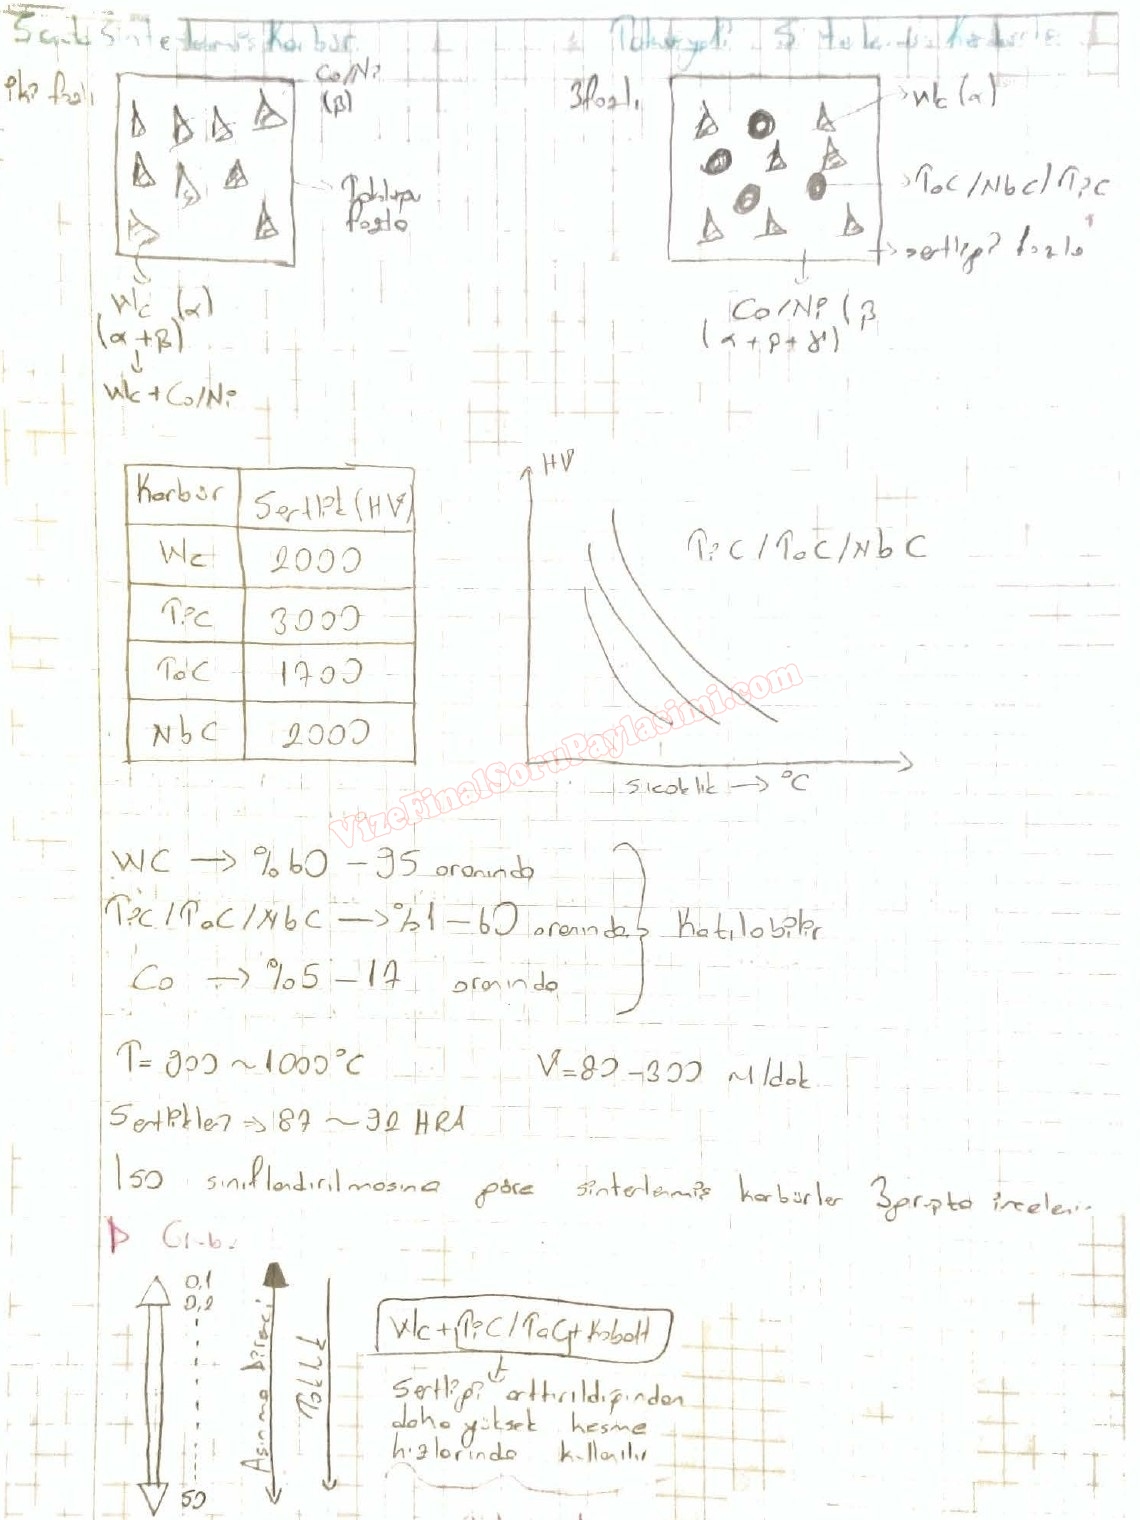 Sinterlenmiş Karbür
iki fazlı
Co/Ni
(β)
Tokluğu
fazla
WC (α)
(α+β)
WC+Co/Ni
3 fazlı
WC (α)
TaC/NbC/TiC
sertliği fazla
Co/Ni (β
(α+β+γ)
Karbür Sertlik (HV)
WC 2000
TiC 3000
TaC 1700
NbC 2000
HV
TiC/TaC/NbC
sıcaklık → °C
VizeFinalSoruPaylasimi.com
WC → %60 – 95 oranında
TiC/TaC/NbC → %1 – 60 oranında
Katılabilir
Co → %5 – 17 oranında
T= 900 ~ 1000°C
V=80–300 m/dak
Sertlikleri ⇒ 87 ~ 92 HRA
ISO sınıflandırılmasına göre sinterlenmiş karbürler 3 grupta incelenir.
P Grubu
0,1
0,2
50
Aşınma Direnci
Tokluk
WC+TiC/TaC+Kobalt
Sertliği arttırıldığından
daha yüksek kesme
hızlarında kullanılır